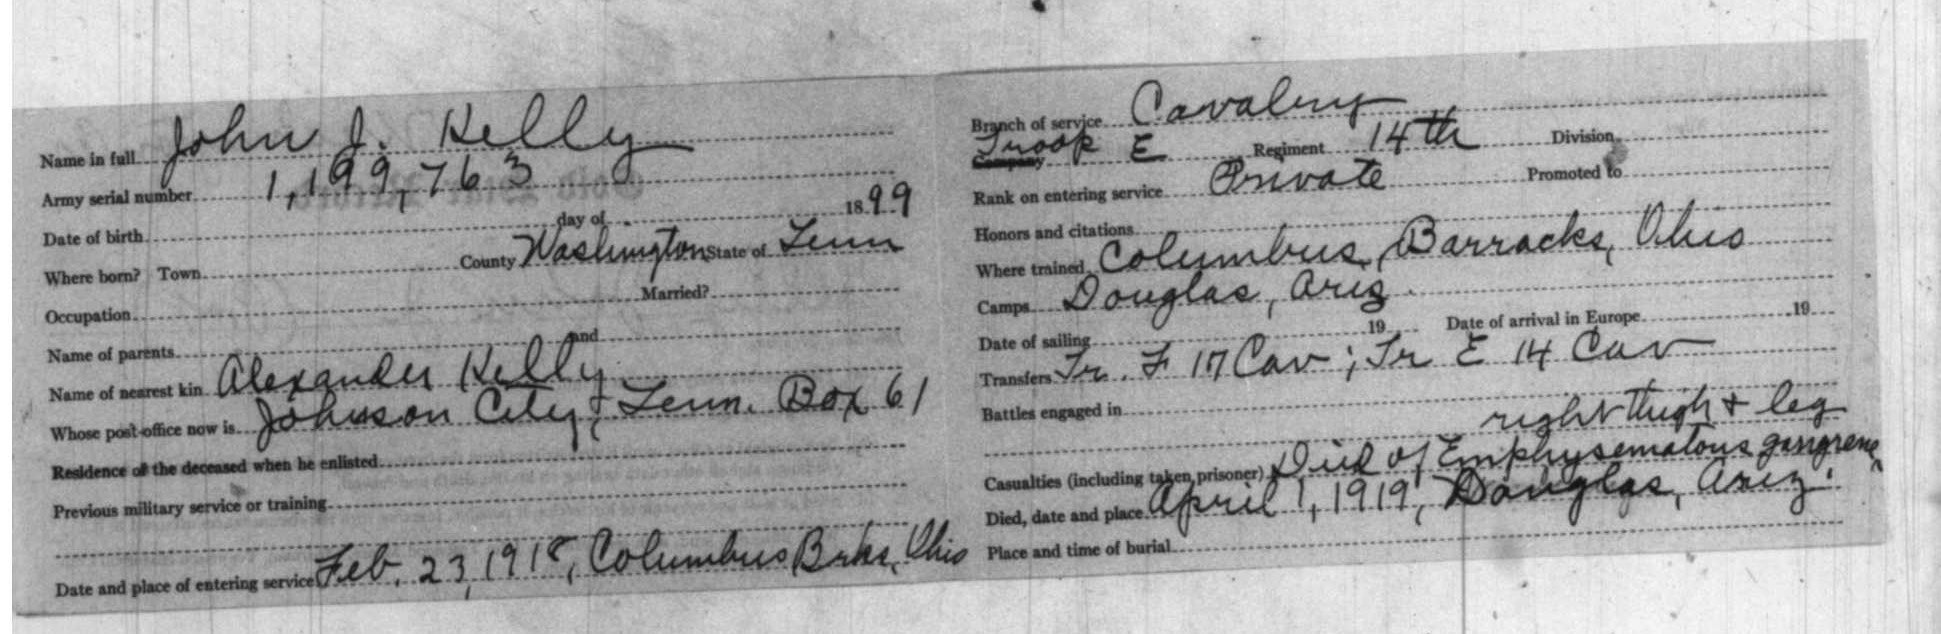 Name in full John J. Kelly
Army serial number 1,199,763
Date of birth day of 1899
Where born? Town County Washington State of Tenn
Occupation Married?
Name of parents and
Name of nearest kin Alexander Kelly
Whose post-office now is Johnson City, Tenn. Box 61
Residence of the deceased when he enlisted
Previous military service or training
Date and place of entering service Feb. 23, 1918, Columbus Brks, Ohio
Branch of service Cavalry
Troop
Company E Regiment 14th Division
Rank on entering service Private Promoted to
Honors and citations
Where trained Columbus, Barracks, Ohio
Camps Douglas, Ariz
Date of sailing 19 Date of arrival in Europe 19
Transfers Tr. F 17 Cav; Tr E 14 Cav
Battles engaged in
right thigh + leg
Casualties (including taken prisoner) Died of Emphysematous gangrene,
Died, date and place April 1, 1919, Douglas, Ariz.
Place and time of burial